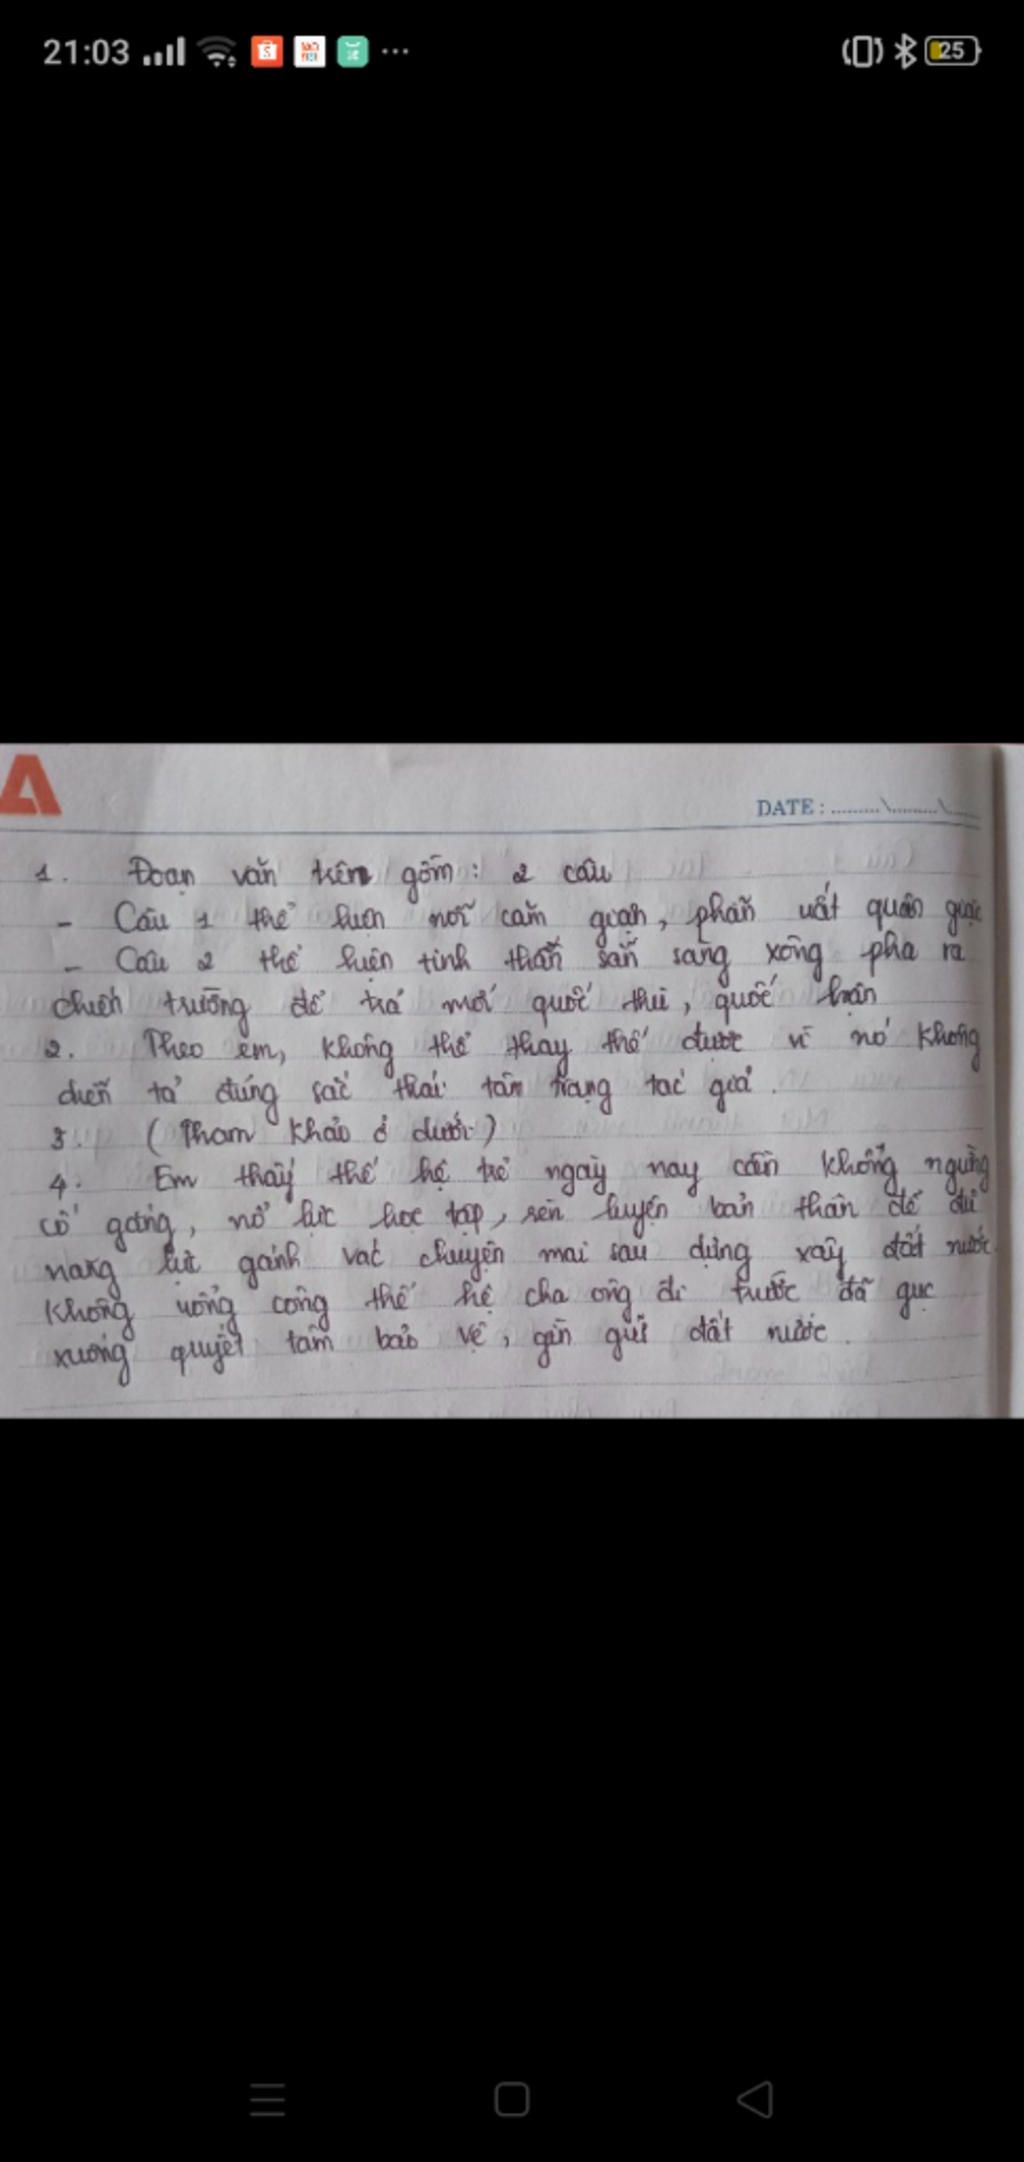 21:03 25
A
DATE : ......\......\....
1. Đoạn văn trên gồm: 2 câu
- Câu 1 thể hiện nỗi căm giận, phẫn uất quân giặc
- Câu 2 thể hiện tinh thần sẵn sàng xông pha ra
chiến trường để trả mối quốc thù, quốc hận
2. Theo em, không thể thay thế được vì nó không
diễn tả đúng sắc thái tâm trạng tác giả.
3. (Tham khảo ở dưới)
4. Em thấy thế hệ trẻ ngày nay cần không ngừng
cố gắng, nỗ lực học tập, rèn luyện bản thân để đủ
năng lực gánh vác chuyện mai sau dựng xây đất nước
không uổng công thế hệ cha ông đi trước đã gục
xuống quyết tâm bảo vệ, gìn giữ đất nước.